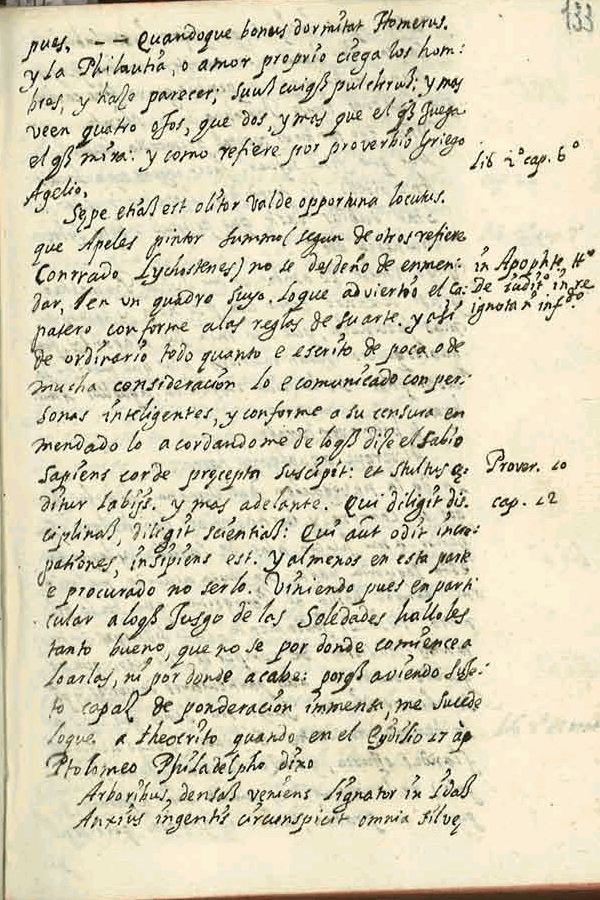 133
pues, -- Quandoque bonus dormitat Homerus.
y la Philautia, o amor proprio ciega los hom:
bres, y haze parecer; suuß cuiqß pulchruß; y mas
veen quatro ojos, que dos, y mas que el qß juega
el qß mira: y como refiere por proverbio Griego
Agelio,
Lib 2º cap. 6º
Sępe etiaß est olitor valde opportuna locutus.
que Apeles pintor summo (segun de otros refiere
Conrrado Lychostenes) no se desdeño de enmen:
in Apophte. tº
dar, en un quadro suyo. loque advierto el Ca:
De iuditº in re
patero conforme alas reglas de su arte. y asi
ignota nº
de ordinario todo quanto e escrito de poca o de
mucha consideración lo e comunicado con per:
sonas inteligentes, y conforme a su censura en
mendado lo acordandome de loqß dise el sabio
sapiens corde pręcepta suscipit: et stultus cę:
Prover. 10
ditur labijs. y mas adelante. Qui diligit dis.
cap. 12
ciplinaß, diligit scientiaß: Qui aut odit incre:
pationes, insipiens est. y al menos en esta parte
e procurado no serlo. Viniendo pues en parti
cular a loqß jusgo de las Soledades hallo les
tanto bueno, que no se por donde comience a
loarlas, ni por donde acabe: porqß aviendo suje:
to capaz de ponderación immensa, me sucede
loque a theocrito quando en el Eydilio 17 ap
Ptolomeo Philadelpho dixo
Arboribus, densaß veniens lignator in Idaß
Anxius ingentis circunspicit omnia silvę